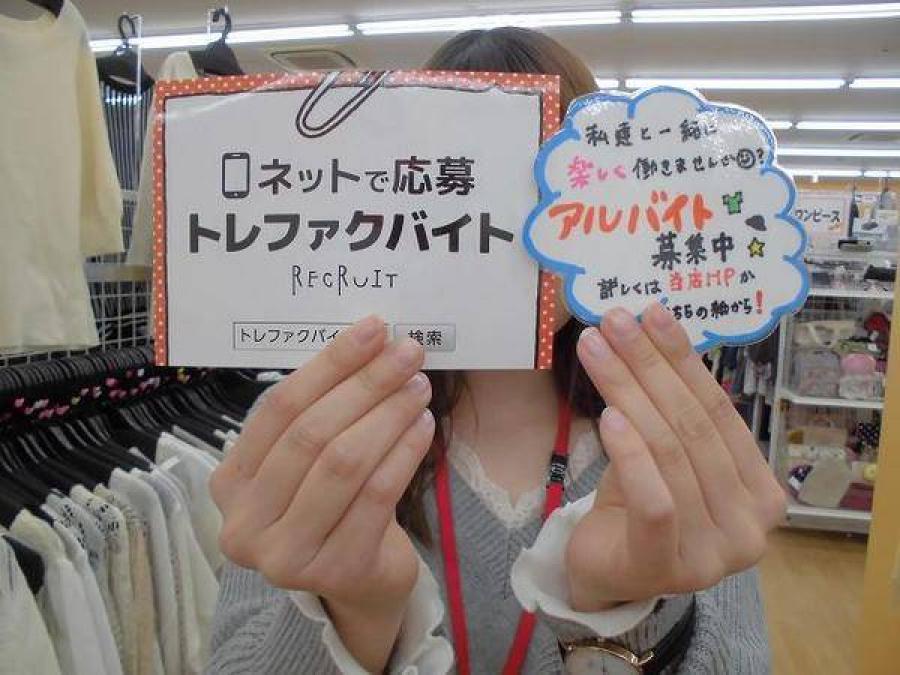 ネットで応募
トレファクバイト
RECRUIT
トレファクバイ
検索
私達と一緒に
楽しく働きませんか?
アルバイト
募集中
詳しくは当店HPか
ちらの軸から!
ワンピース